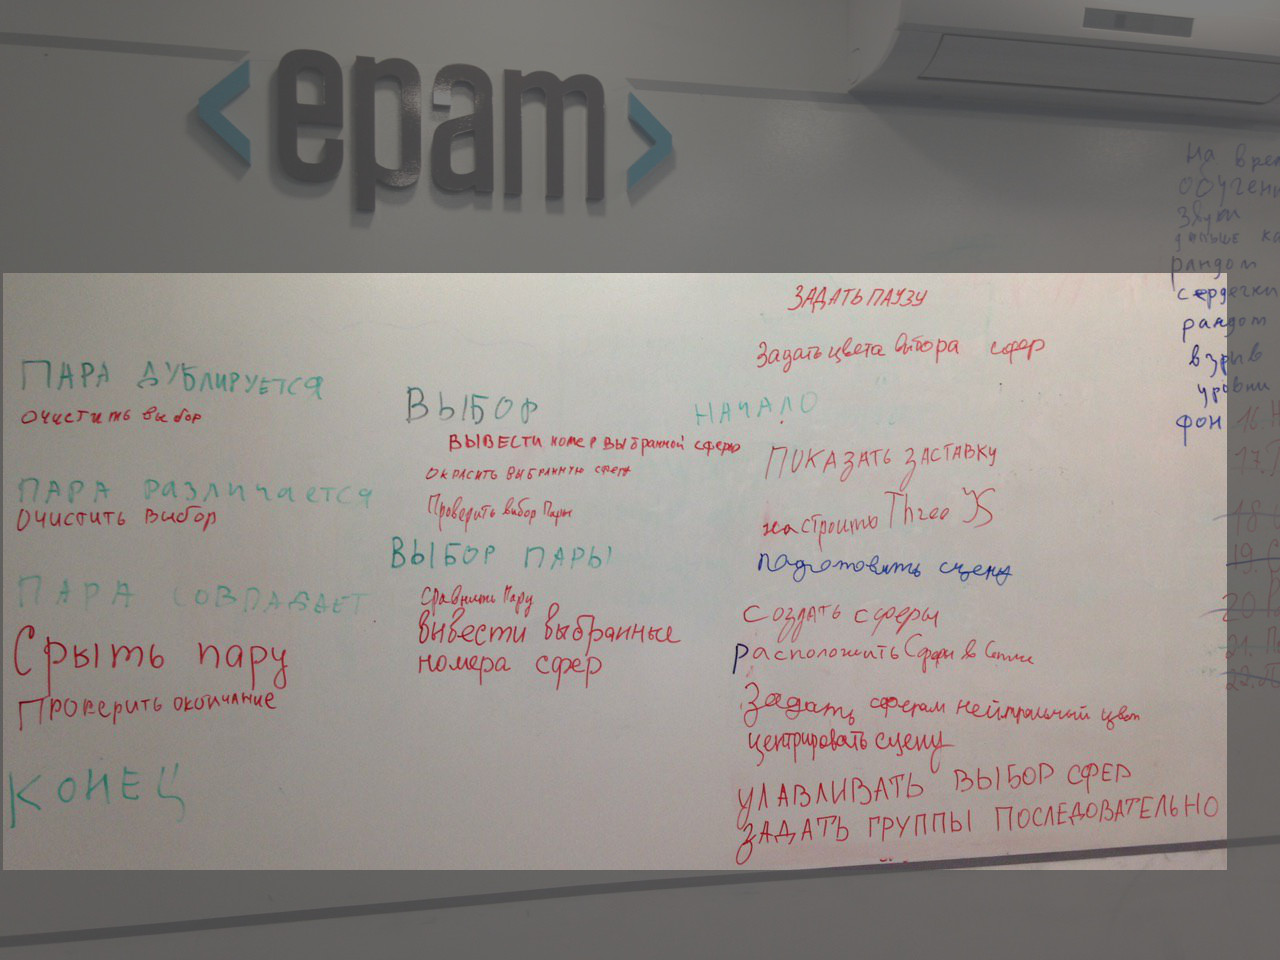 <epam>
ПАРА ДУБЛИРУЕТСЯ
Очистить выбор
ПАРА различается
Очистить выбор
ПАРА СОВПАДАЕТ
Срыть пару
Проверить окончание
КОНЕЦ
ВЫБОР
ВЫВЕСТИ номер выбранной сферы
ОКРАСИТЬ ВЫБРАННУЮ сферу
Проверить выбор Пары
ВЫБОР ПАРЫ
Сравнить Пару
вывести выбранные
номера сфер
ЗАДАТЬ ПАУЗУ
Задать цвета выбора сфер
НАЧАЛО
ПОКАЗАТЬ ЗАСТАВКУ
настроить Three JS
подготовить сцену
Создать сферы
расположить Сферы в Сетке
Задать сферам нейтральный цвет
центрировать сцену
УЛАВЛИВАТЬ ВЫБОР СФЕР
ЗАДАТЬ ГРУППЫ ПОСЛЕДОВАТЕЛЬНО
На
Звуки
рандом
сердечки
рандом
взрыв
уровни
фон
16.
17.
18
19.
20
21.
22.